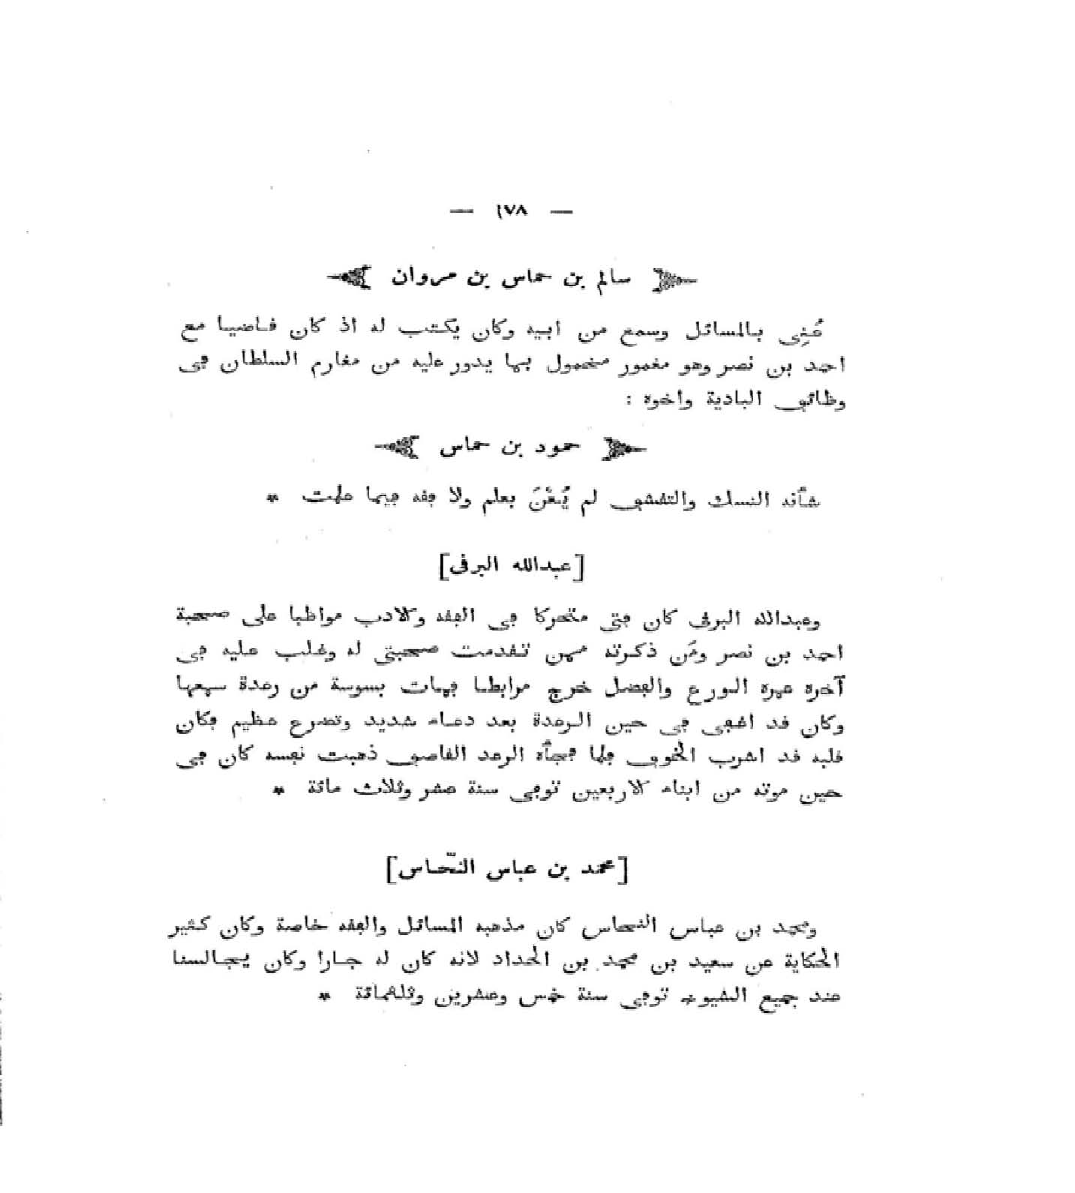 — ١٧٨ —
سالم بن حماس بن مروان
عُنِي بالمسائل وسمع من ابيه وكان يكتب له اذ كان قاضيا مع
احمد بن نصر وهو مغمور مخمول بها يدور عليه من مغارم السلطان في
وظائف البادية واخوه :
حمود بن حماس
شأنه النسك والتقشف لم يُعْنَ بعلم ولا فقه فيما علمت *
[عبدالله البرقي]
وعبدالله البرقي كان فتى متحركا في الفقه والادب مواظبا على صحبة
احمد بن نصر ومَن ذكرته ممن تقدمت صحبتي له وغلب عليه في
آخرة عمره الورع والفضل خرج مرابطا فمات بسوسة من رعدة سمعها
وكان قد اغمي في حين الرعدة بعد دعاء شديد وتضرع عظيم فكان
قلبه قد اشرب الخوف فلما فجأه الرعد القاصف ذهبت نفسه كان في
حين موته من ابناء الاربعين توفي سنة عشر وثلاث مائة *
[محمد بن عباس النحّاس]
ومحمد بن عباس النحاس كان مذهبه المسائل والفقه خاصة وكان كثير
الحكاية عن سعيد بن محمد بن الحداد لانه كان له جارا وكان يجالسنا
عند جميع الشيوخ توفي سنة خمس وعشرين وثلثمائة *